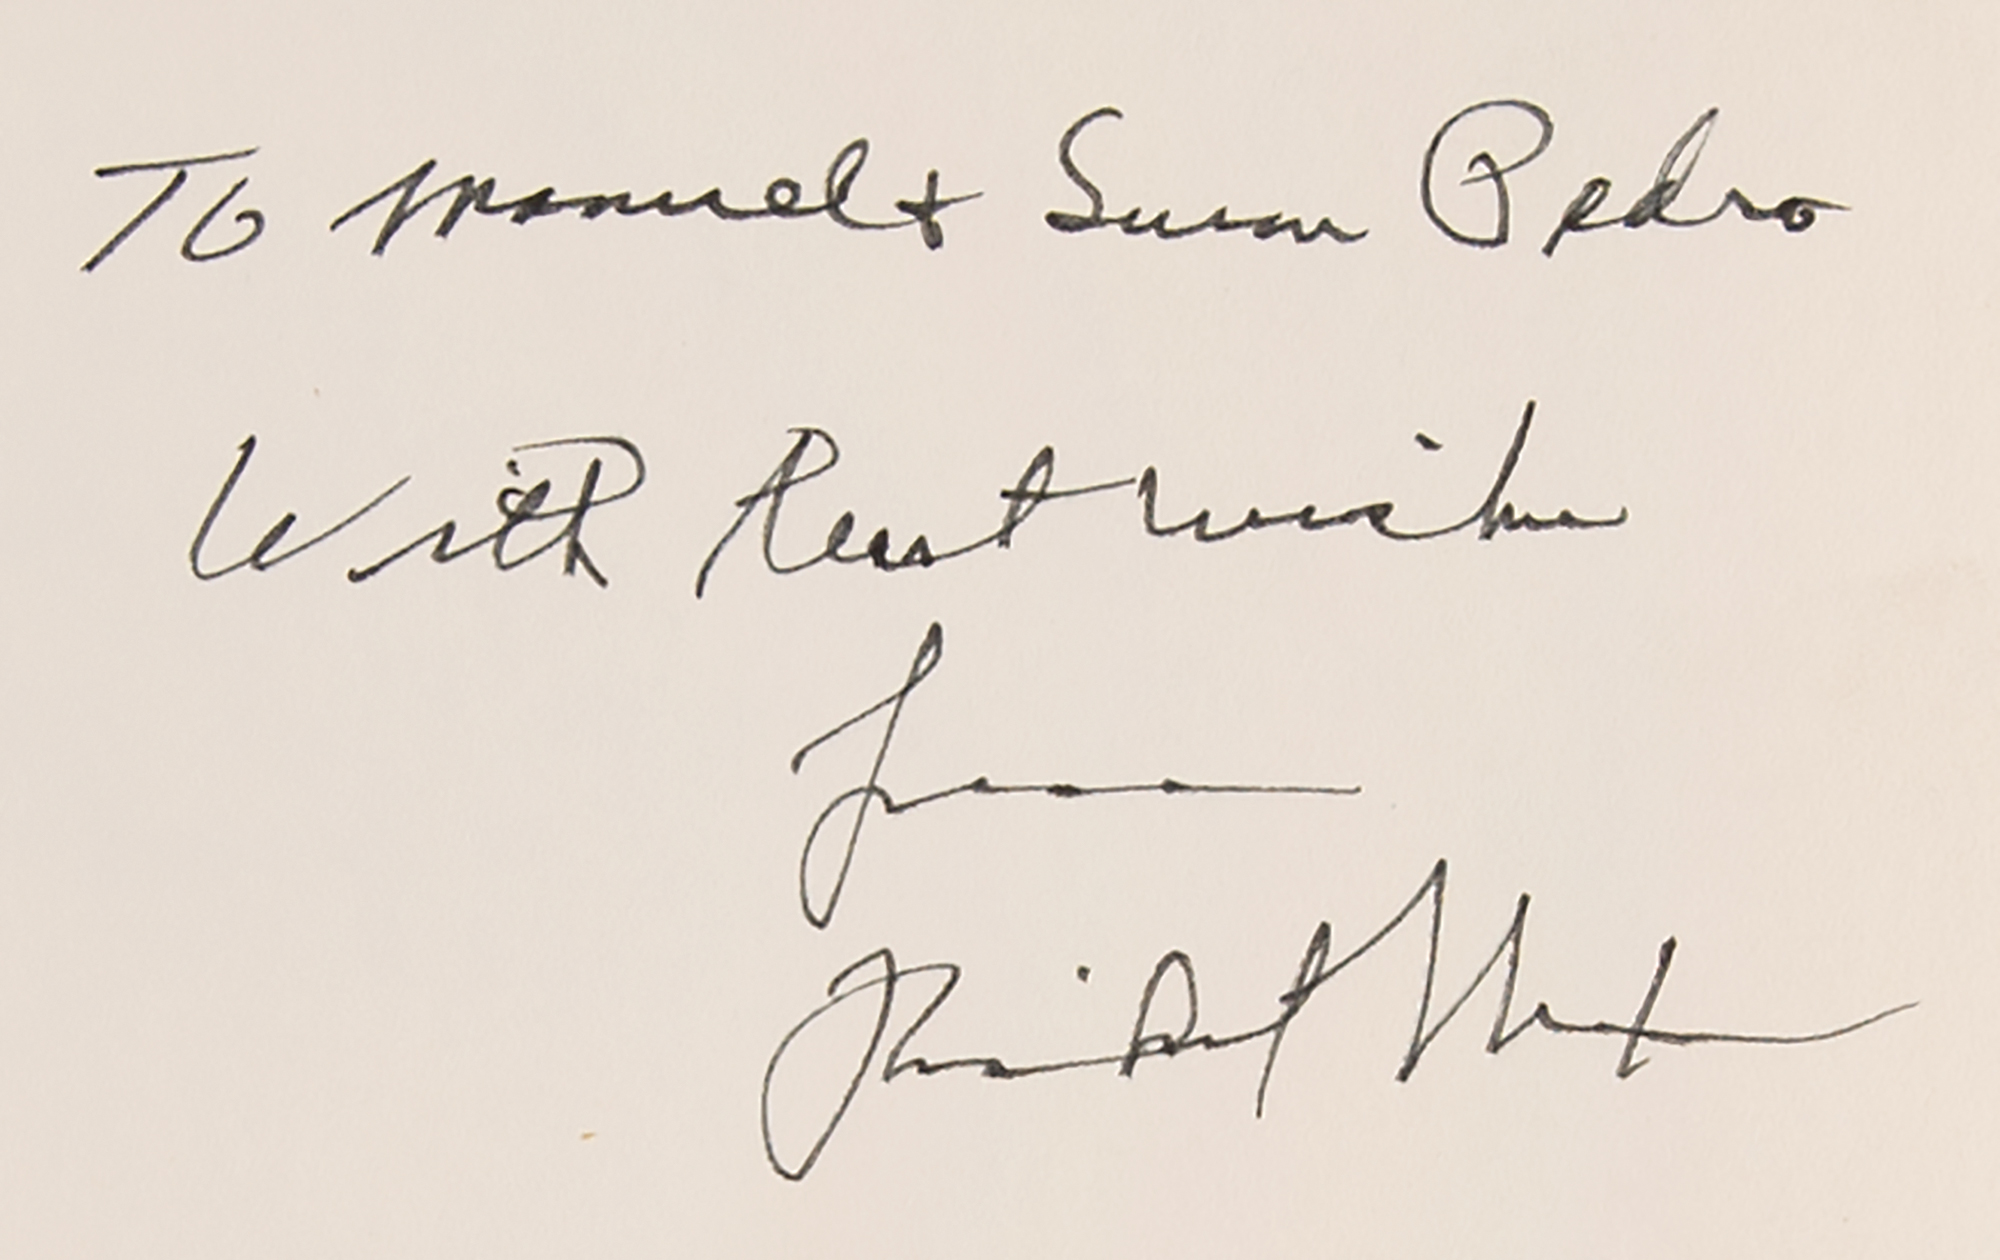 To Manuel & Susan Pedro
With Best wishes
from
Richard Nixon